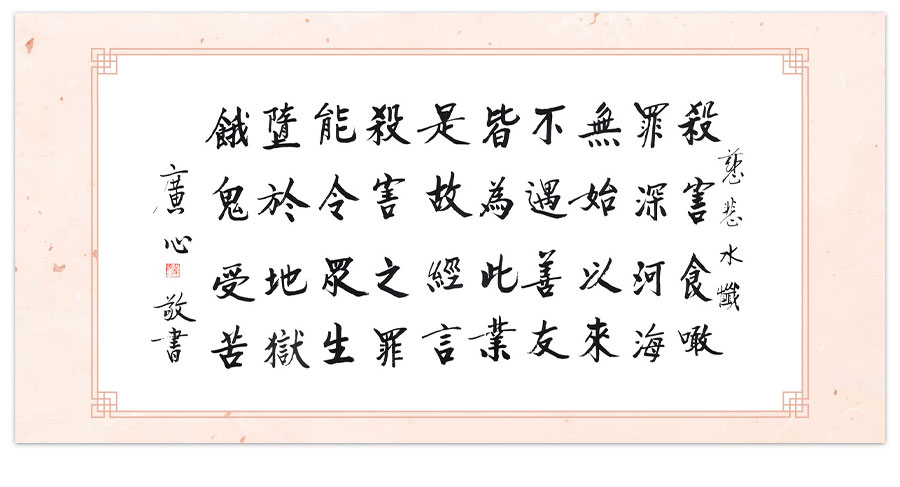 慈悲水懺
殺害食噉
罪深河海
無始以來
不遇善友
皆為此業
是故經言
殺害之罪
能令眾生
墮於地獄
餓鬼受苦
廣心敬書